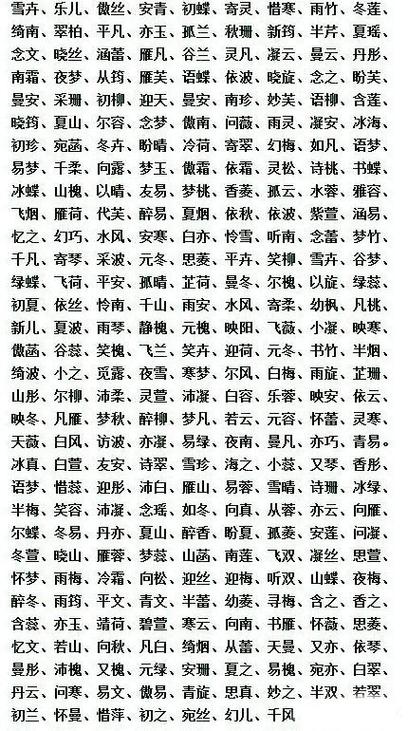 雪卉、乐儿、傲丝、安青、初蝶、寄灵、惜寒、雨竹、冬莲、
绮南、翠柏、平凡、亦玉、孤兰、秋珊、新筠、半芹、夏瑶、
念文、晓丝、涵蕾、雁凡、谷兰、灵凡、凝云、曼云、丹彤、
南霜、夜梦、从筠、雁芙、语蝶、依波、晓旋、念之、盼芙、
曼安、采珊、初柳、迎天、曼安、南珍、妙芙、语柳、含莲、
晓筠、夏山、尔容、念梦、傲南、问薇、雨灵、凝安、冰海、
初珍、宛菡、冬卉、盼晴、冷荷、寄翠、幻梅、如凡、语梦、
易梦、千柔、向露、梦玉、傲霜、依霜、灵松、诗桃、书蝶、
冰蝶、山槐、以晴、友易、梦桃、香菱、孤云、水蓉、雅容、
飞烟、雁荷、代芙、醉易、夏烟、依秋、依波、紫萱、涵易、
忆之、幻巧、水风、安寒、白亦、怜雪、听南、念蕾、梦竹、
千凡、寄琴、采波、元冬、思菱、平卉、笑柳、雪卉、谷梦、
绿蝶、飞荷、平安、孤晴、芷荷、曼冬、尔槐、以旋、绿蕊、
初夏、依丝、怜南、千山、雨安、水风、寄柔、幼枫、凡桃、
新儿、夏波、雨琴、静槐、元槐、映阳、飞薇、小凝、映寒、
傲菡、谷蕊、笑槐、飞兰、笑卉、迎荷、元冬、书竹、半烟、
绮波、小之、觅露、夜雪、寒梦、尔风、白梅、雨旋、芷珊、
山彤、尔柳、沛柔、灵萱、沛凝、白容、乐蓉、映安、依云、
映冬、凡雁、梦秋、醉柳、梦凡、若云、元容、怀蕾、灵寒、
天薇、白风、访波、亦凝、易绿、夜南、曼凡、亦巧、青易。
冰真、白萱、友安、诗翠、雪珍、海之、小蕊、又琴、香彤、
语梦、惜蕊、迎彤、沛白、雁山、易蓉、雪晴、诗珊、冰绿、
半梅、笑容、沛凝、念瑶、如冬、向真、从蓉、亦云、向雁、
尔蝶、冬易、丹亦、夏山、醉香、盼夏、孤菱、安莲、问凝、
冬萱、晓山、雁蓉、梦蕊、山菡、南莲、飞双、凝丝、思萱、
怀梦、雨梅、冷霜、向松、迎丝、迎梅、听双、山蝶、夜梅、
醉冬、雨筠、平文、青文、半蕾、幼菱、寻梅、含之、香之、
含蕊、亦玉、靖荷、碧萱、寒云、向南、书雁、怀薇、思菱、
忆文、若山、向秋、凡白、绮烟、从蕾、天曼、又亦、依琴、
曼彤、沛槐、又槐、元绿、安珊、夏之、易槐、宛亦、白翠、
丹云、问寒、易文、傲易、青旋、思真、妙之、半双、若翠、
初兰、怀曼、惜萍、初之、宛丝、幻儿、千风